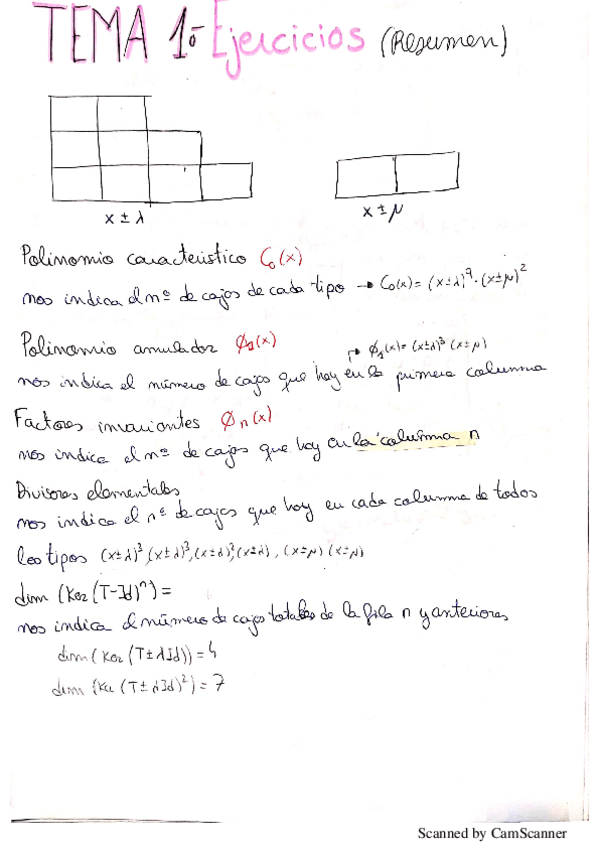 TEMA 1.- Ejercicios (Resumen)
x ± λ
x ± μ
Polinomio característico C₀(x)
nos indica el nº de cajas de cada tipo → C₀(x) = (x±λ)⁹·(x±μ)²
Polinomio anulador ø₁(x)
↱ ø₁(x) = (x±λ)³ (x±μ)
nos indica el número de cajas que hay en la primera columna
Factores invariantes øₙ(x)
nos indica el nº de cajas que hay en la columna n
Divisores elementales
nos indica el nº de cajas que hay en cada columna de todos
los tipos (x±λ)³, (x±λ)³, (x±λ)², (x±λ), (x±μ) (x±μ)
dim (Ker (T-Id)ⁿ) =
nos indica el número de cajas totales de la fila n y anteriores
dim (Ker (T±λId)) = 4
dim (Ker (T±λId)²) = 7
Scanned by CamScanner